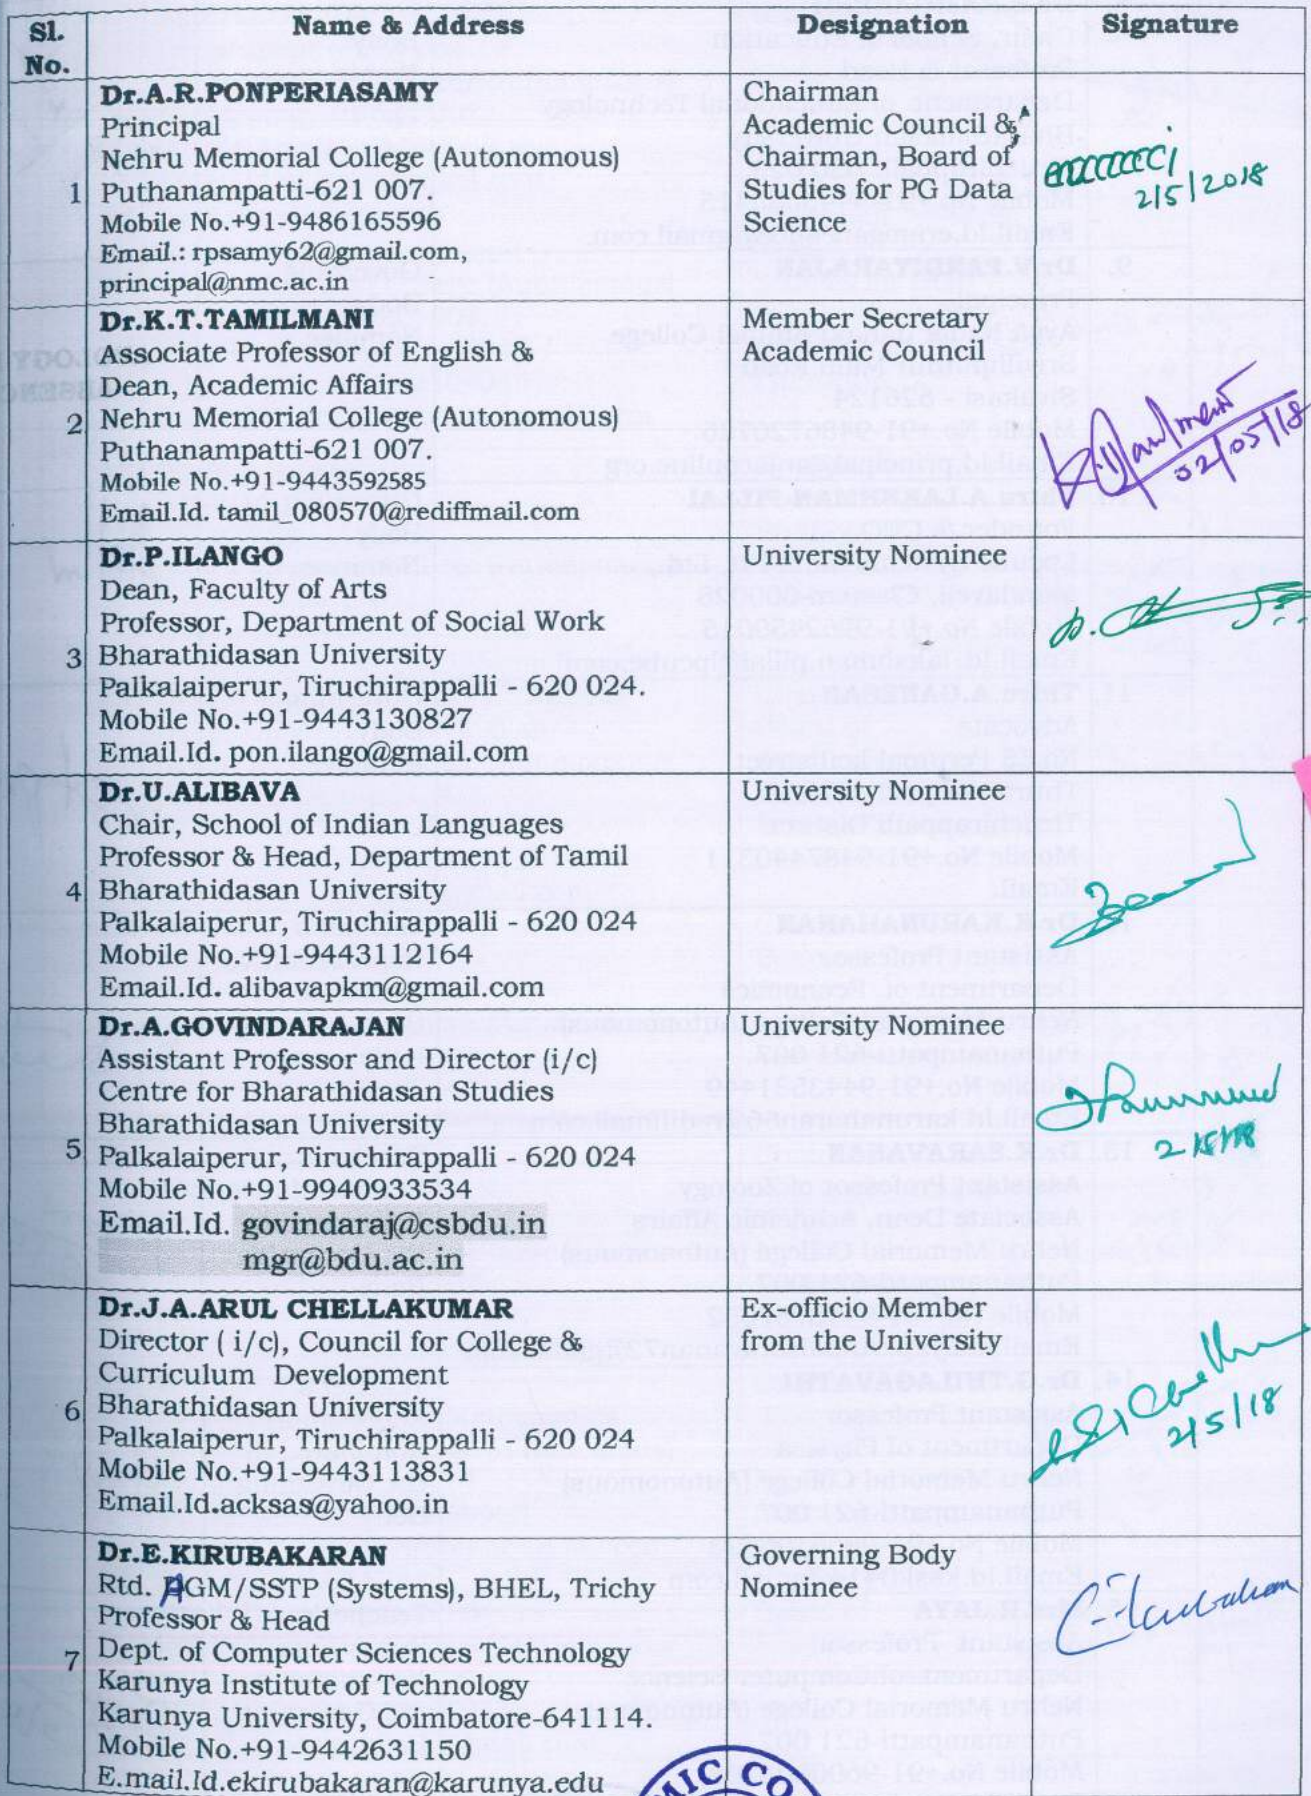 Sl. No.
Name & Address
Designation
Signature
1
Dr.A.R.PONPERIASAMY
Principal
Nehru Memorial College (Autonomous)
Puthanampatti-621 007.
Mobile No.+91-9486165596
Email.: rpsamy62@gmail.com,
principal@nmc.ac.in
Chairman
Academic Council &
Chairman, Board of
Studies for PG Data
Science
2/5/2018
2
Dr.K.T.TAMILMANI
Associate Professor of English &
Dean, Academic Affairs
Nehru Memorial College (Autonomous)
Puthanampatti-621 007.
Mobile No.+91-9443592585
Email.Id. tamil_080570@rediffmail.com
Member Secretary
Academic Council
02/05/18
3
Dr.P.ILANGO
Dean, Faculty of Arts
Professor, Department of Social Work
Bharathidasan University
Palkalaiperur, Tiruchirappalli - 620 024.
Mobile No.+91-9443130827
Email.Id. pon.ilango@gmail.com
University Nominee
4
Dr.U.ALIBAVA
Chair, School of Indian Languages
Professor & Head, Department of Tamil
Bharathidasan University
Palkalaiperur, Tiruchirappalli - 620 024
Mobile No.+91-9443112164
Email.Id. alibavapkm@gmail.com
University Nominee
5
Dr.A.GOVINDARAJAN
Assistant Professor and Director (i/c)
Centre for Bharathidasan Studies
Bharathidasan University
Palkalaiperur, Tiruchirappalli - 620 024
Mobile No.+91-9940933534
Email.Id. govindaraj@csbdu.in
mgr@bdu.ac.in
University Nominee
6
Dr.J.A.ARUL CHELLAKUMAR
Director ( i/c), Council for College &
Curriculum Development
Bharathidasan University
Palkalaiperur, Tiruchirappalli - 620 024
Mobile No.+91-9443113831
Email.Id.acksas@yahoo.in
Ex-officio Member
from the University
2/5/18
7
Dr.E.KIRUBAKARAN
Rtd. AGM/SSTP (Systems), BHEL, Trichy
Professor & Head
Dept. of Computer Sciences Technology
Karunya Institute of Technology
Karunya University, Coimbatore-641114.
Mobile No.+91-9442631150
E.mail.Id.ekirubakaran@karunya.edu
Governing Body
Nominee